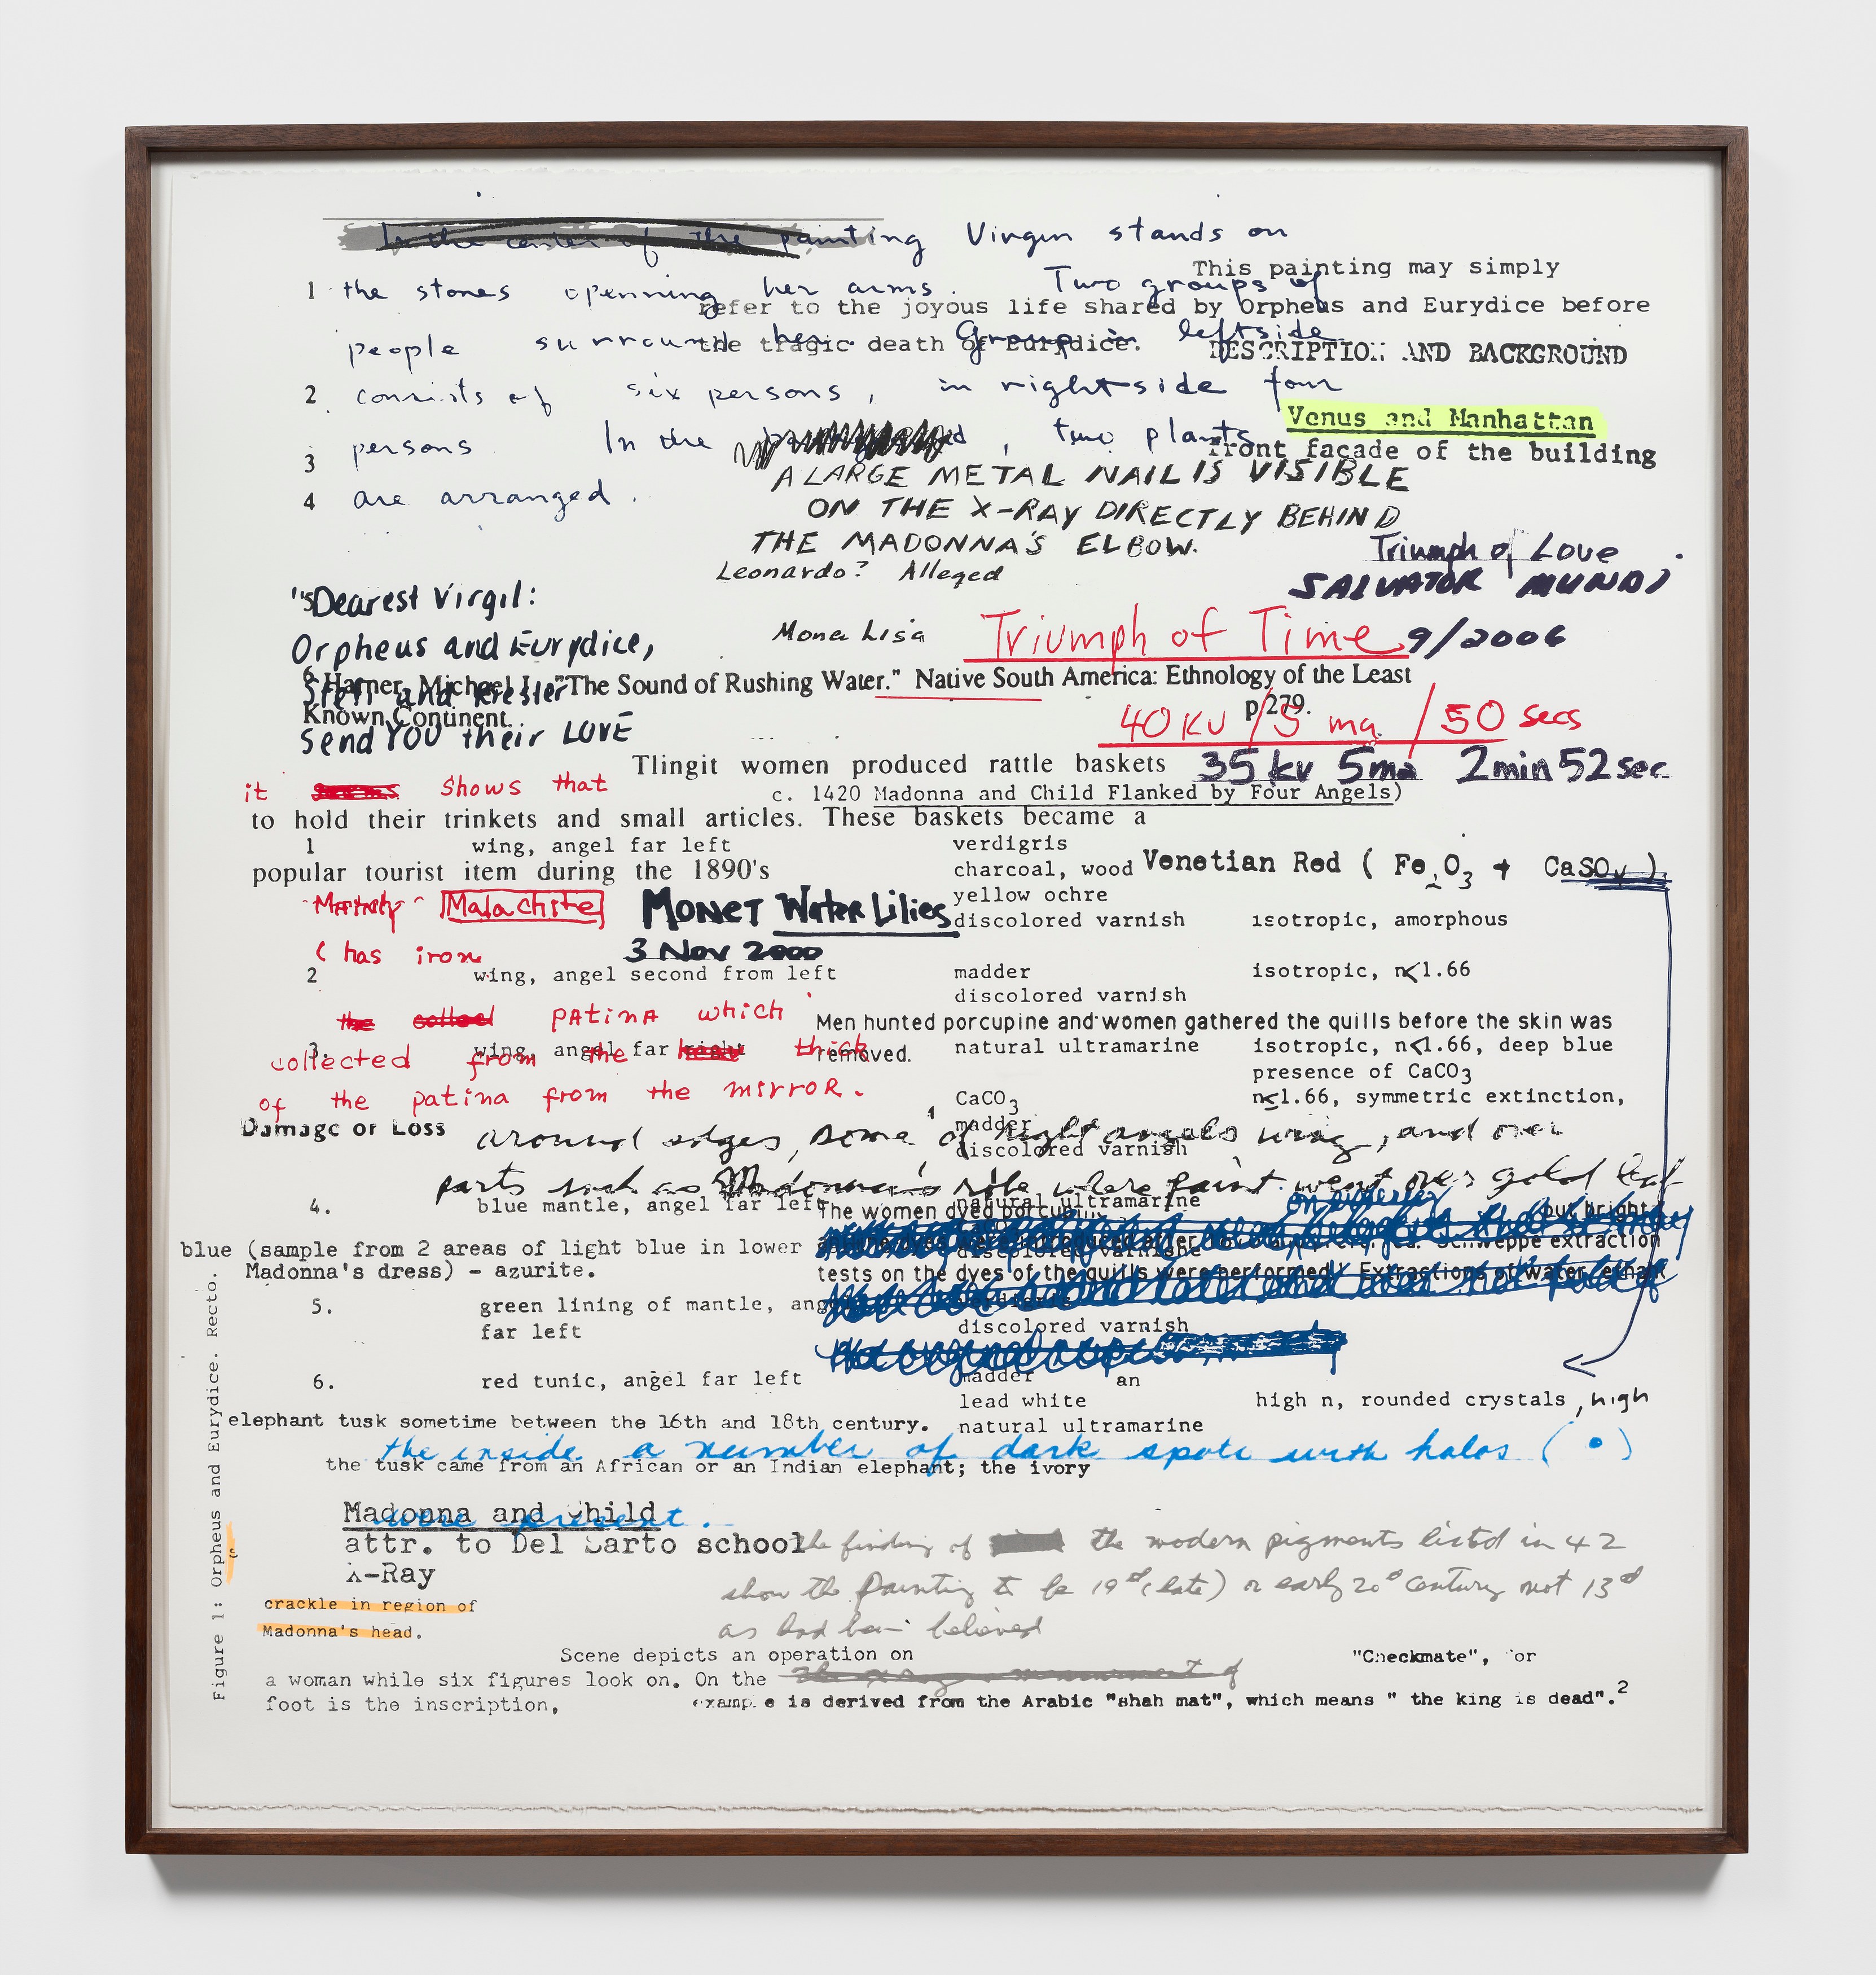 In the center of the painting Virgin stands on
This painting may simply
1 the stones openning her arms. Two groups of
refer to the joyous life shared by Orpheus and Eurydice before
people surround her. Group in leftside
the tragic death of Eurydice.
DESCRIPTION AND BACKGROUND
2 consists of six persons, in rightside four
Venus and Manhattan
3 persons In the , two plants
front façade of the building
4 are arranged.
A LARGE METAL NAIL IS VISIBLE
ON THE X-RAY DIRECTLY BEHIND
THE MADONNA'S ELBOW.
Triumph of Love
Leonardo? Alleged
SALVATOR MUNDI
5
"Dearest Virgil:
Mona Lisa
Triumph of Time 9/2006
Orpheus and Eurydice,
6 Harner, Michael J. "The Sound of Rushing Water." Native South America: Ethnology of the Least
Steff and Kresler
Known Continent. p 279.
40 KV / 5 ma. / 50 secs
Send YOU their LOVE
Tlingit women produced rattle baskets
35 kv 5ma 2min 52sec
it seems shows that
c. 1420 Madonna and Child Flanked by Four Angels)
to hold their trinkets and small articles. These baskets became a
1 wing, angel far left verdigris
charcoal, wood
Venetian Red ( Fe2O3 + CaSO4 )
popular tourist item during the 1890's
yellow ochre
Malachite
MONET Water Lilies
discolored varnish isotropic, amorphous
( has iron
3 Nov 2000
2 wing, angel second from left madder isotropic, n<1.66
discolored varnish
the collect patina which
Men hunted porcupine and women gathered the quills before the skin was
removed.
3. wing, angel far right natural ultramarine isotropic, n<1.66, deep blue
collected from the thick
presence of CaCO3
of the patina from the mirror.
CaCO3 n≤1.66, symmetric extinction,
madder
Damage or Loss around edges, some of right angels wing, and over
discolored varnish
parts such as Madonna's robe where paint went over gold leaf
4. blue mantle, angel far left natural ultramarine
The women dyed porcup
but bright
blue (sample from 2 areas of light blue in lower
Schweppe extraction
discolored varnishe
Madonna's dress) - azurite.
tests on the dyes of the quills were performed. Extractions of water,
5. green lining of mantle, ang verdigris
far left discolored varnish
6. red tunic, angel far left madder an
lead white high n, rounded crystals, high
elephant tusk sometime between the 16th and 18th century.
natural ultramarine
the inside a number of dark spots with halos ( • )
the tusk came from an African or an Indian elephant; the ivory
Madonna and Child
were present.
attr. to Del Sarto school
the finding of the modern pigments listed in 42
X-Ray
show the painting to be 19th (late) or early 20th century not 13th
crackle in region of
Madonna's head.
as had been believed
Scene depicts an operation on
"Checkmate", for
a woman while six figures look on. On the
foot is the inscription,
example is derived from the Arabic "shah mat", which means " the king is dead".2
Figure 1: Orpheus and Eurydice. Recto.